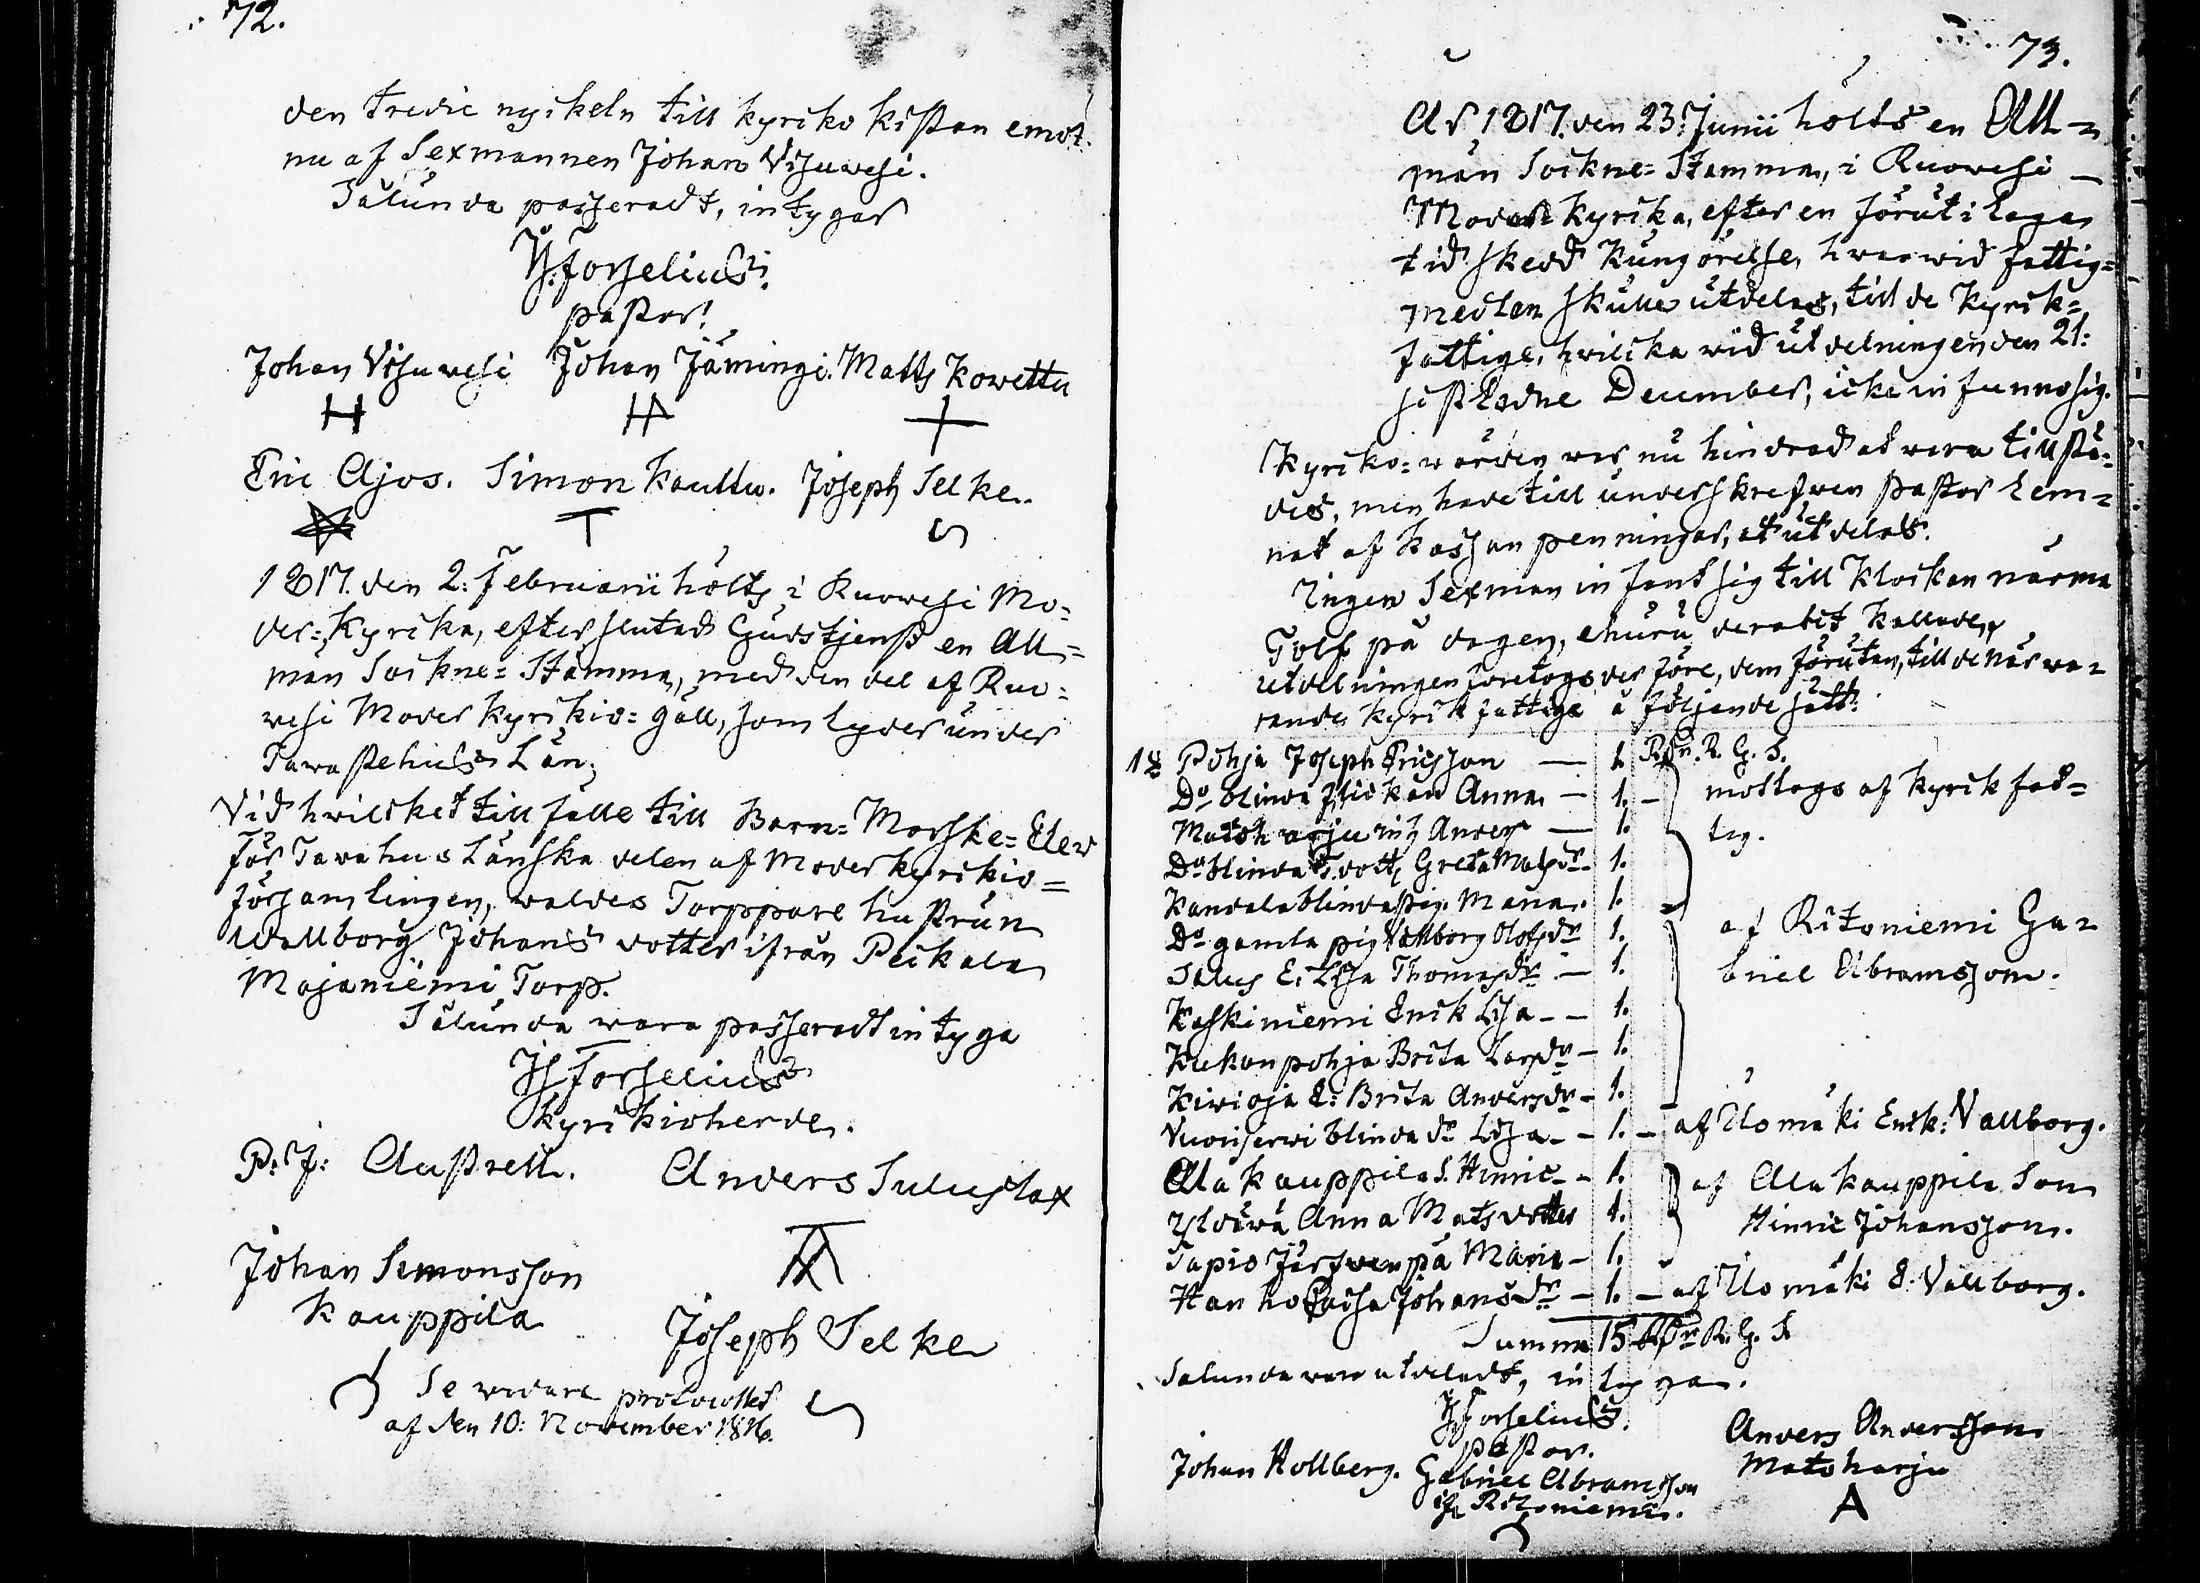 72.
den tredie nyckeln till kyrko kistan emot
nu af Sexmannen Johan Visuwesi.
Sålunda passeradt, intygar
Hj. Forselius.
pastor.
Johan Visuwesi Johan Jäminigi. Matts Kowettu
Eric Ajos. Simon Kauttu. Joseph Selke.
1817. den 2: Februarii hölts i Ruowesi Mo=
der=Kyrka, efter slutad Gudstjenst en All=
män Sockne=Stämma, med den del af Ruo=
wesi Moder Kyrkio=gäll, som lyder under
Tawastehus Län;
Vid hwilcket tillfälle till Barn=Morske=Elev
för Tavahus Länska delen af Moderkyrkio=
församlingen, waldes Torppare hustrun
Wallborg Johans dotter ifrån Peckala
Majaniemi Torp.
Sålunda wara passeradt intyga
Hj Forselius
Kyrkioherde.
P: J: Austrell. Anders Suluslax
Johan Simonsson
Kauppila
Joseph Selke
Se widare protocollet
af den 10: November 1816.
73.
År 1817. den 23: Junii hölts en All=
män Sockne=Stämma, i Ruowesi
Moder=Kyrka, efter en förut i laga
tid skedd Kungörelse, hwarwid fattig=
medlen skulle utdelas, till de Kyrk=
fattige, hwilcka wid utdelningen den 21:
sistledne December, icke infunno sig.
Kyrko=wärden war nu hindrad at wara tillstä=
des, men hade till underskrefwen pastor lem=
nat af Kassan penningar, at utdelas.
Ingen Sexman infant sig till Klockan närma
Tolf på dagen, ehuru deratit kallade,
utdelningen företogs der före, dem förutan, till de närwa=
rande Kyrkfattiga å följande sätt:
Pohja Joseph Ericsson — 1. R. G. S.
Do blinda flickan Anna — 1. — mottogs af Kyrkfat=
Matoharju inh Anders — 1. tig.
Do blinda dott Greta Matsdr — 1.
Kandala blinda pig. Maria. 1.
Do gamla pig Wallborg Olofsdr 1. af Ritoniemi Ga=
Salus E. Lisa Thomasdr — 1. briel Abramsson.
Koskiniemi Enck Lisa — 1.
Kukonpohja Brita Larsdr — 1.
Kiwioja E: Brita Andersdr — 1.
Vuorijerwi blinda dr Lisa — 1. — af Uomäki Enck: Vallborg.
Ala Kauppila S. Hinric — 1. af Ala Kauppila Son
Ylöiwä Anna Matsdotter 1. Hinric Johansson.
Tapio Järfwenpä Maria — 1.
Hanho Caisa Johansdr — 1. — af Uomäki E. Vallborg.
Summa 15 R. G. S.
Sålunda wara utdeladt, intygar.
Hj Forselius.
pastor.
Johan Hollberg. Gabriel Abramsson
ifr Ritoniemi.
Anders Andersson
Matoharju